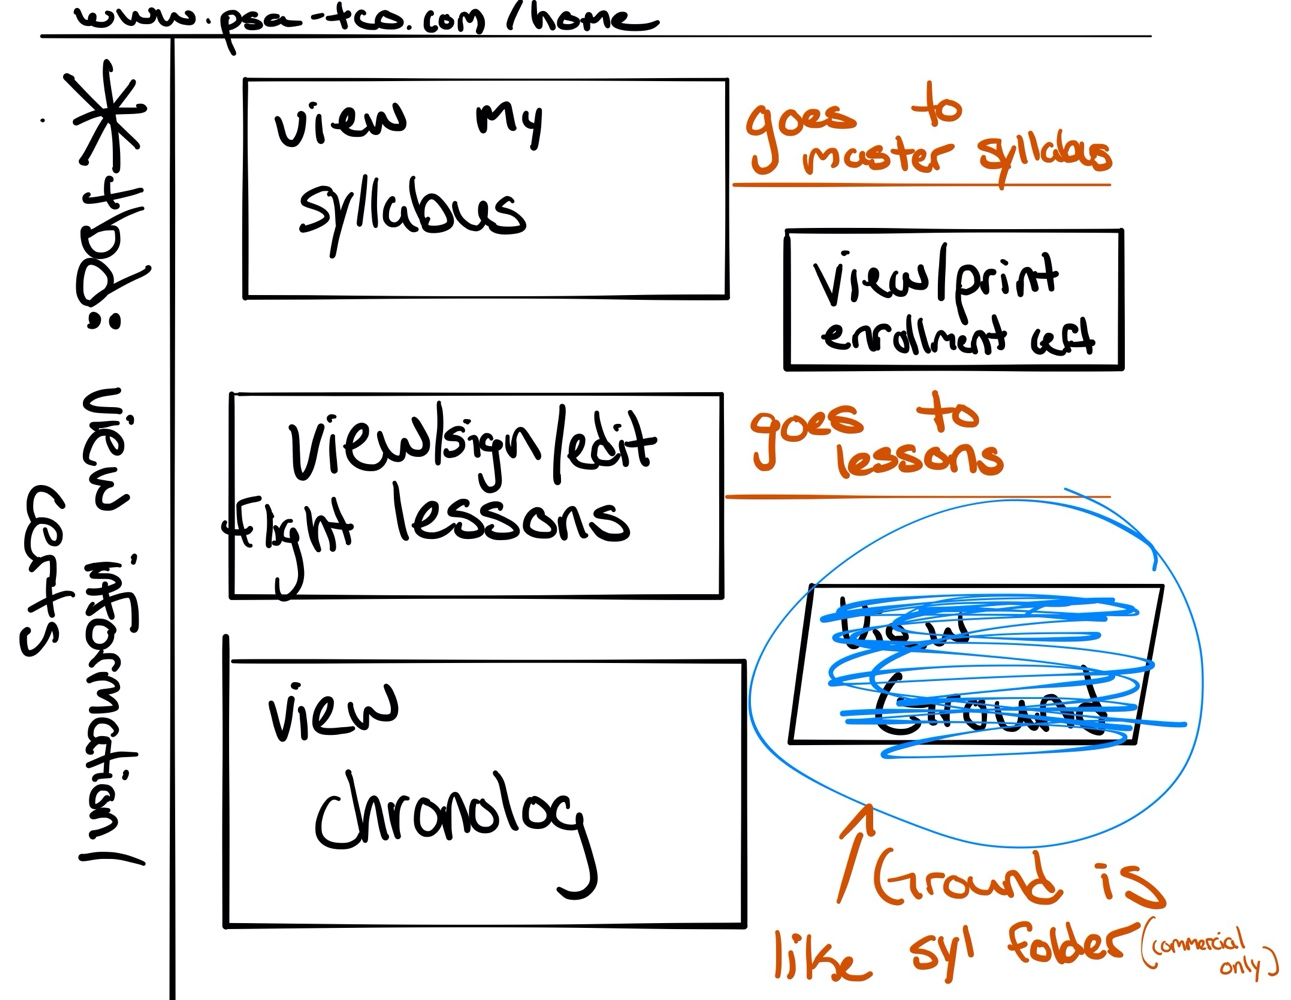 www.psa-tco.com/home
*tbd: view informational
certs
view my
syllabus
goes to
master syllabus
view/print
enrollment cert
view/sign/edit
flight lessons
goes to
lessons
view
chronolog
View
Ground
Ground is
like syl folder (commercial
only)